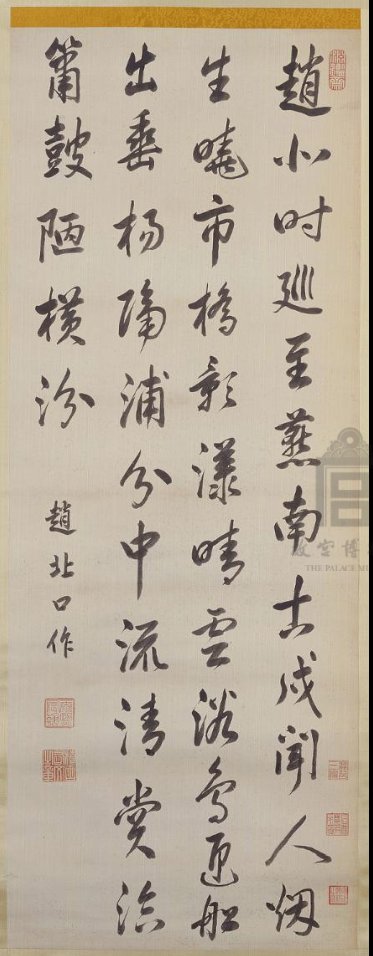 趙北时廵至燕南古戍聞人烟
生曉市橋影漾晴雲浴鳥迎船
出垂楊隔浦分中流清賞洽
簫鼓陋橫汾
趙北口作
故宫博
THE PALACE MU